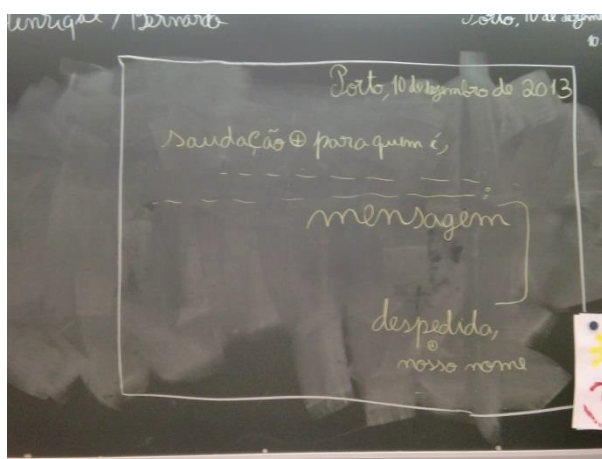 Henrique / Bernardo
Porto, 10 de dezem
10
Porto, 10 de dezembro de 2013
saudação + para quem é,
mensagem
despedida,
+
nosso nome